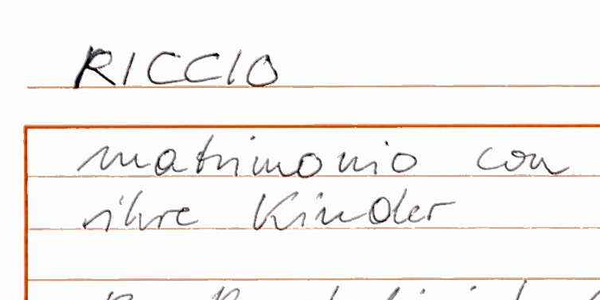 RICCIO
matrimonio con
ihre Kinder